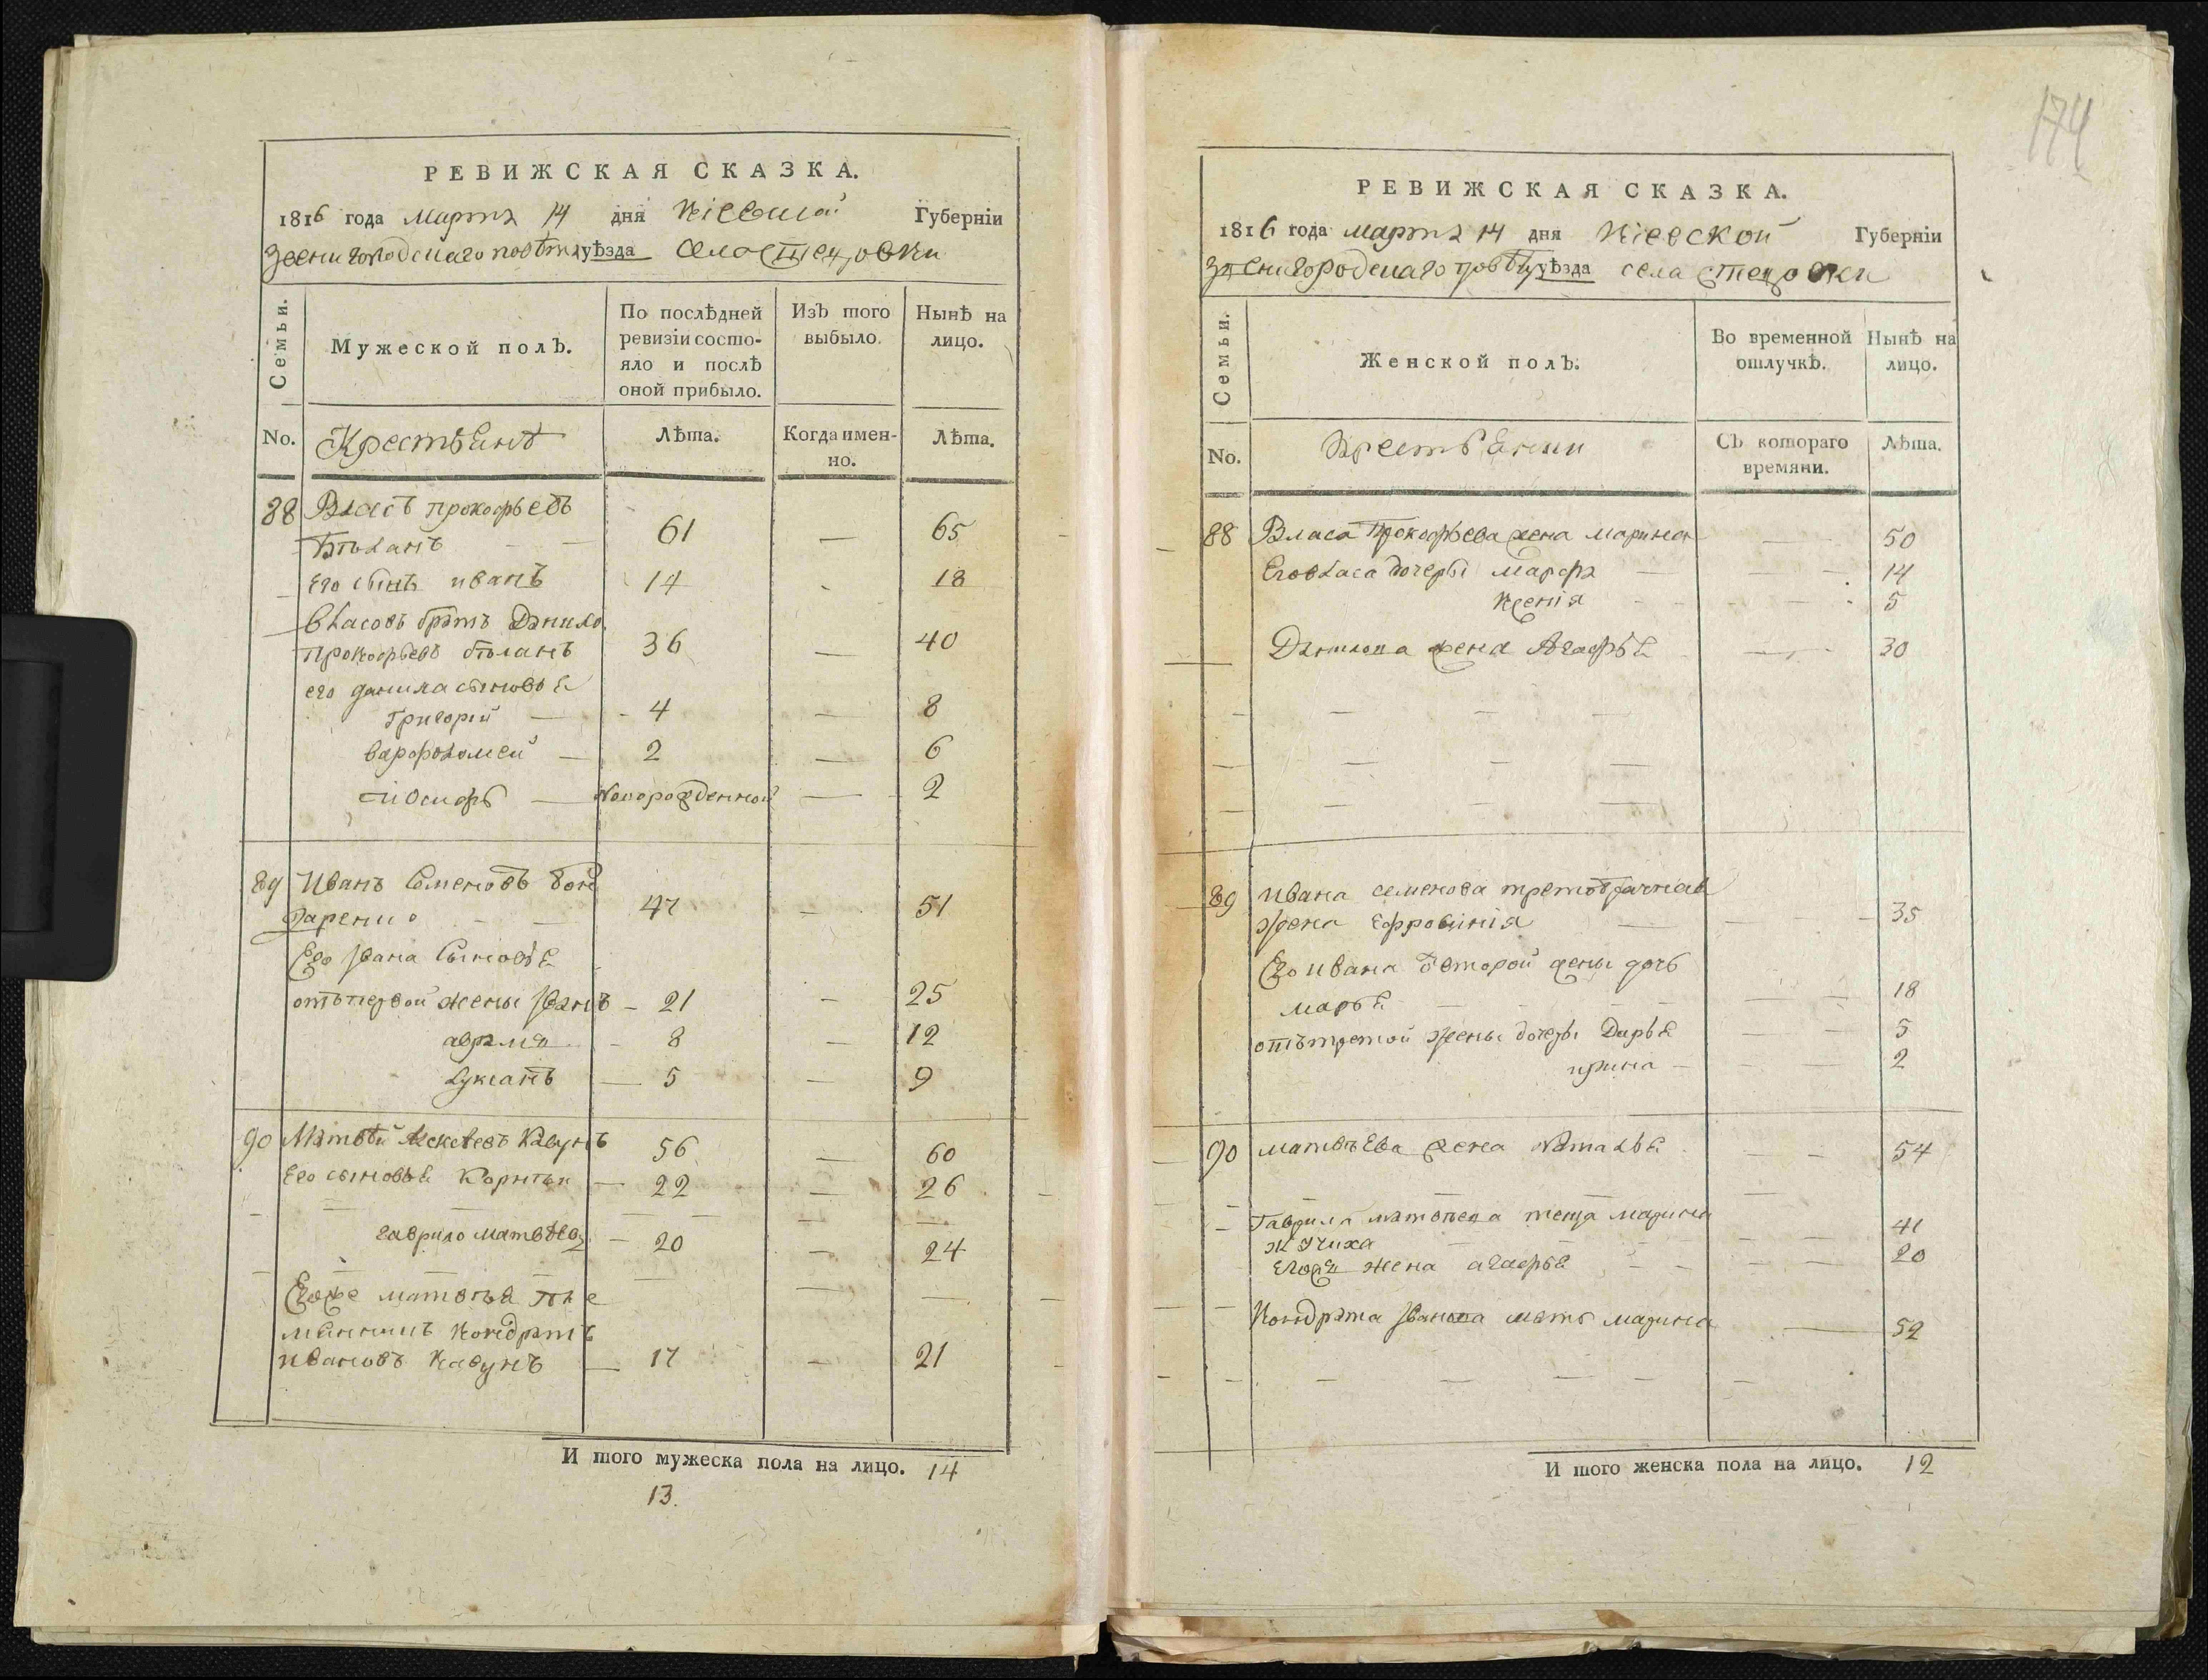 РЕВИЖСКАЯ СКАЗКА.
1816 года марта 14 дня Кіевской Губерніи
Звенигородскаго повѣта уѣзда села Стецовки
Семьи.
Мужеской полъ.
По послѣдней ревизіи состояло и послѣ оной прибыло.
Изъ того выбыло.
Нынѣ на лицо.
No. Крестьянѣ Лѣта. Когда именно. Лѣта.
88 Власъ прокофьевъ
61 — 65
его сынъ иванъ 14 - 18
власовъ братъ Данило
Прокофьевъ 36 — 40
его данила сыновья
Григорий — 4 — 8
варфоломей — 2 — 6
Новорожденной — 2
89 Иванъ Семеновъ бон
даренко 47 — 51
Его Ивана Сыновья
отъ первой жены Иванъ — 21 — 25
8 — 12
Лукианъ — 5 — 9
90 Матвѣй Кавунъ 56 — 60
Его сыновья 22 — 26
гаврило матвѣевъ — 20 — 24
Егоже матвѣя пле
мянникъ Кондратъ
ивановъ Кавунъ — 17 — 21
И того мужеска пола на лицо. 14
13.
174
РЕВИЖСКАЯ СКАЗКА.
1816 года марта 14 дня Кіевской Губерніи
Звенигородскаго повѣта уѣзда села стецовки
Семьи.
Женской полъ.
Во временной отлучкѣ.
Нынѣ на лицо.
No. Крестьянки Съ котораго времяни. Лѣта.
88 Власа Прокофьева жена марина — 50
Его власа дочеры марфа — 14
Ксенія — 5
Данилова жена Агафья — 30
89 ивана семенова третобрачная
жена Ефросинія — 35
Его ивана второй жены дочь
марья — 18
отъ третой жены дочеры Дарья — 5
ирина — 2
90 матвѣева жена Наталья — 54
Гаврила матвѣева теща марина 41
Егожъ жена агафья — 20
Кондрата Иванова мать марина — 52
И того женска пола на лицо. 12